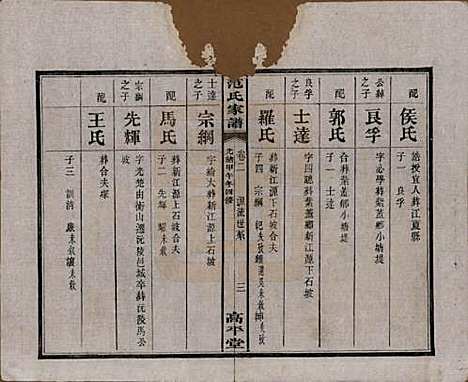 配
侯氏
誥授宜人葬江夏縣
子一 良孚
公縣之子
良孚
字必學葬紫蓋鄉小塘堤
配
郭氏
合葬紫蓋鄉小塘堤
子一 士達
良孚之子
士達
字四聰葬新江源下石坡
配
羅氏
葬新江源下石坡
子四 宗綱
范氏家譜
卷二
源流世系
光緒甲午年四修
三
高平堂
士達之子
宗綱
字緒大葬新江源上石坡
配
馬氏
葬新江源上石坡合夫
子二 先輝 耀未敘
宗綱之子
先輝
字光楚由衡山遷沅陵縣城卒葬沅陵馬公坡
配
王氏
葬合夫塚
子三 訓